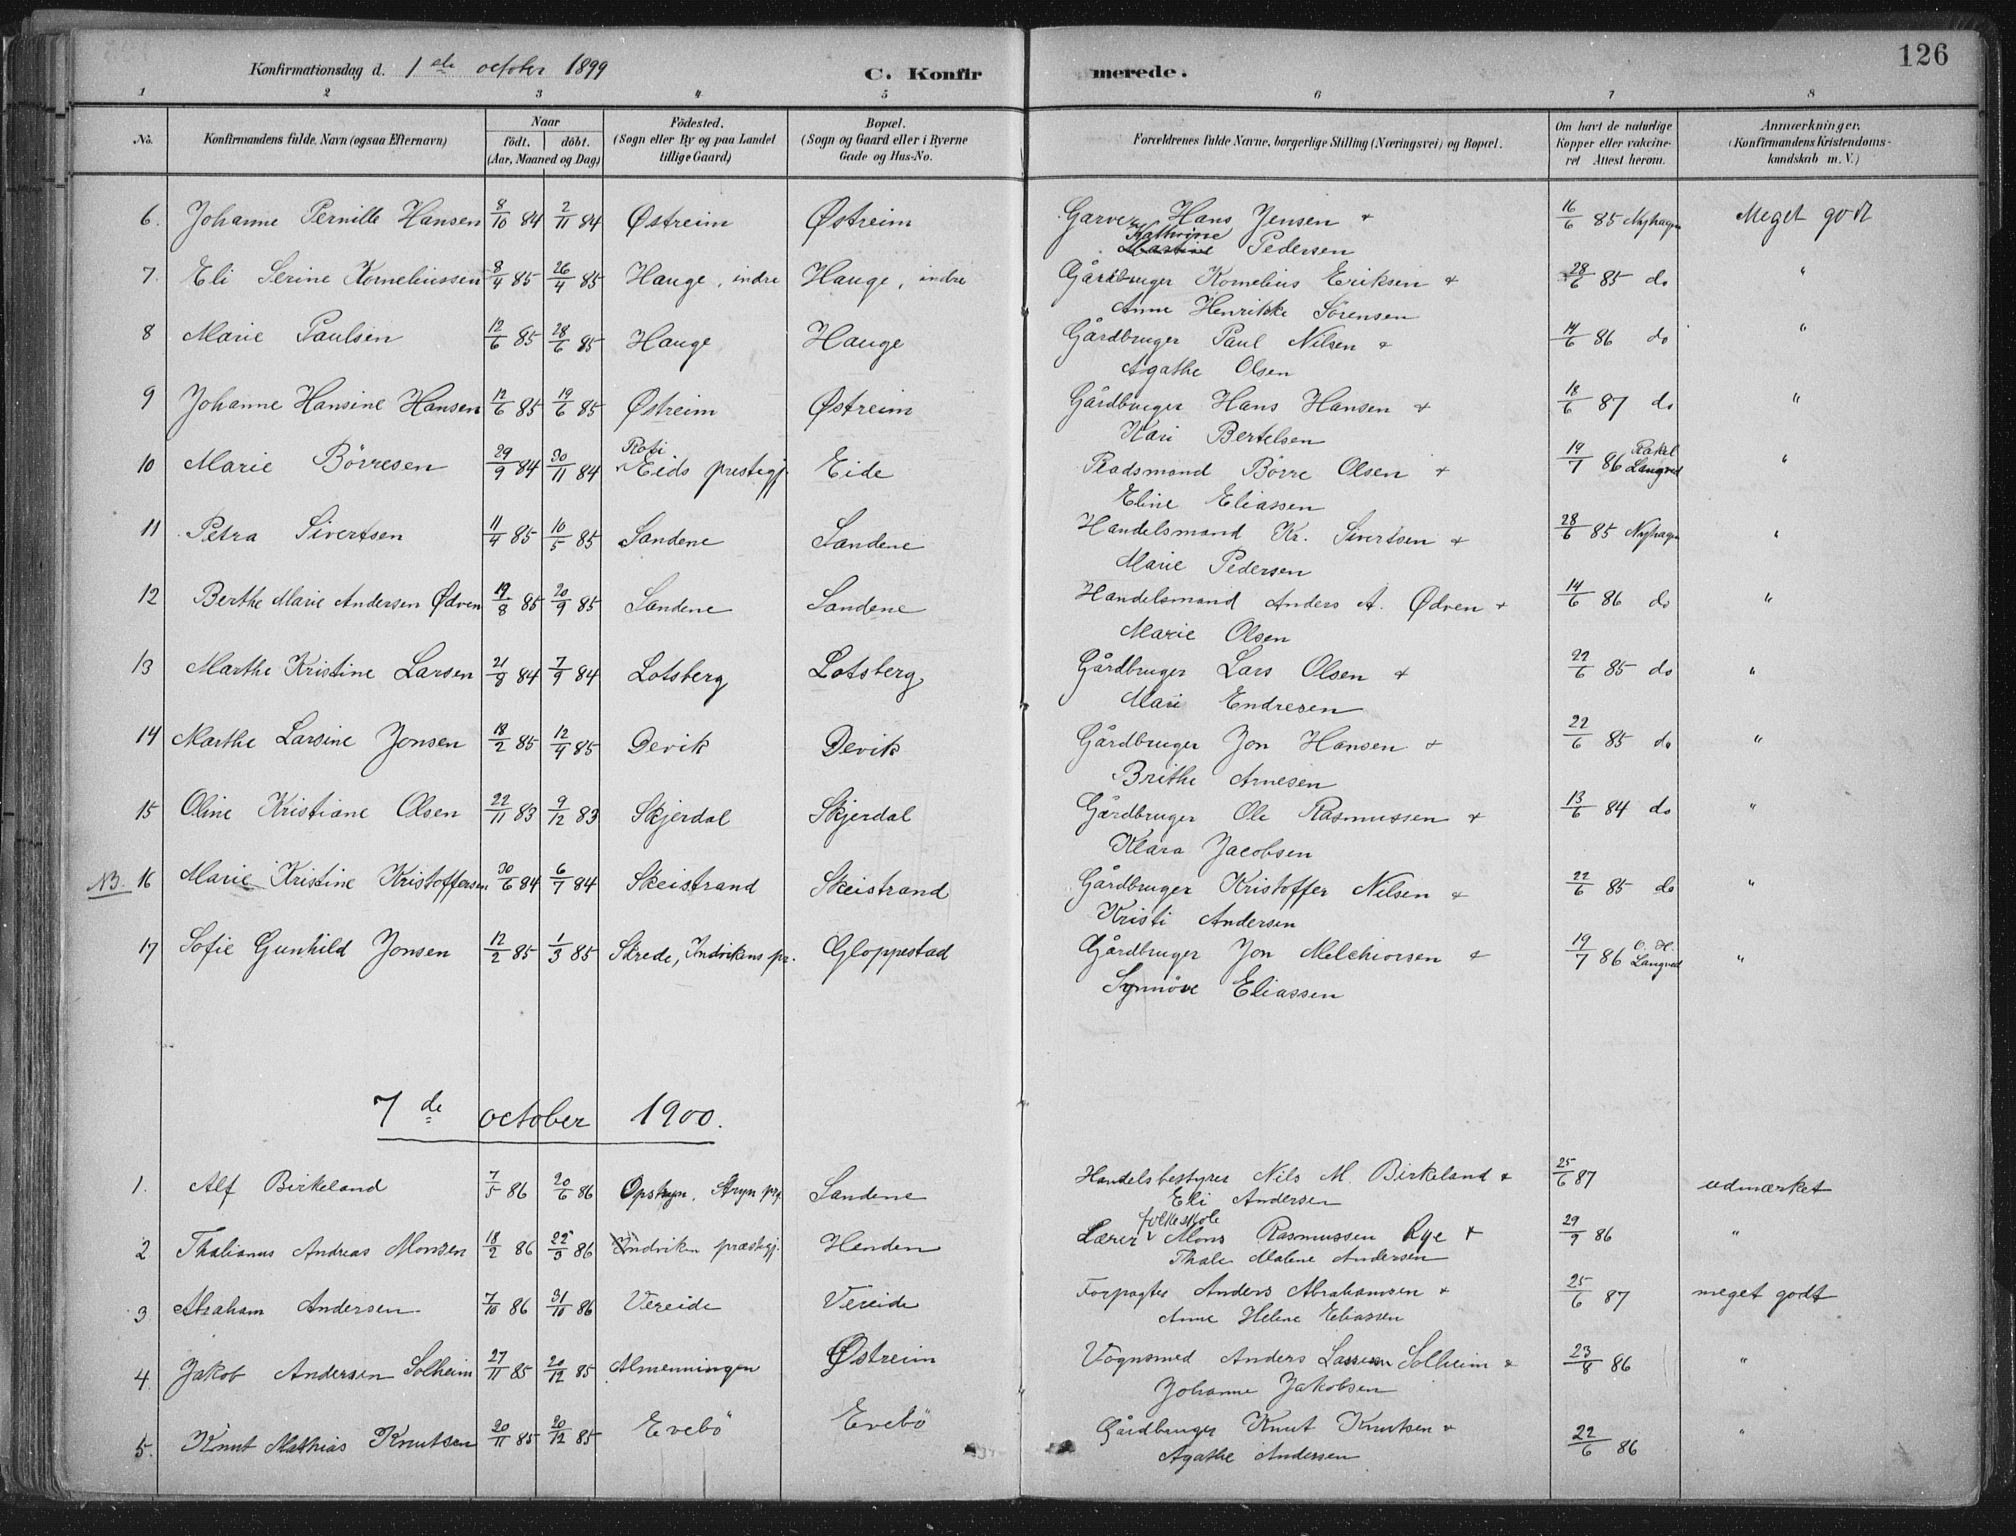 126
Konfirmationsdag d. 1ste october 1899 C. Konfirmerede.
1 2 3 4 5 6 7 8
No. Konfirmandens fulde Navn (ogsaa Efternavn) Naar födt. döbt. (Aar, Maaned og Dag) Födested. (Sogn eller By og paa Landet tillige Gaard) Bopæl. (Sogn og Gaard eller i Byerne Gade og Hus-No. Forældrenes fulde Navne, borgerlige Stilling (Næringsvei) og Bopæl. Om havt de naturlige Kopper eller vakcineret Attest herom. Anmærkninger. (Konfirmandens Kristendomskundskab m. V.)
6. Johanne Pernille Hansen 8/10 84 2/11 84 Østreim Østreim Garver Hans Jensen + 16/6 85 Nyhagen Meget godt
Kathrine
Martine Pedersen
7. Eli Serine Korneliussen 8/4 85 26/4 85 Hauge, indre Hauge, indre Gårdbruger Kornelius Eriksen + 28/6 85 do "
Anne Henrikke Sørensen
8 Marie Paulsen 12/6 85 28/6 85 Hauge Hauge Gårdbruger Paul Nilsen + 14/6 86 do "
Agathe Olsen
9 Johanne Hansine Hansen 12/6 85 19/6 85 Østreim Østreim Gårdbruger Hans Hansen + 18/6 87 do "
Kari Bertelsen
10 Marie Börresen 29/9 84 30/11 84 Eids prestegj. Eide Pladsmand Börre Olsen + 19/7 86 Rakel Langved "
Eline Eliassen
11 Petra Sivertsen 11/4 85 10/5 85 Sandene Sandene Handelsmand Kr. Sivertsen + 28/6 85 Nyhagen "
Marie Pedersen
12 Berthe Marie Andersen Ødven 19/8 85 20/9 85 Sandene Sandene Handelsmand Anders A. Ødven + 14/6 86 do "
Marie Olsen
13 Marthe Kristine Larsen 21/8 84 7/9 84 Lotsberg Lotsberg Gårdbruger Lars Olsen + 22/6 85 do "
Mari Endresen
14 Marthe Larsine Jonsen 18/2 85 12/4 85 Devik Devik Gårdbruger Jon Hansen + 22/6 85 do "
Brithe Arnesen
15 Oline Kristiane Olsen 22/11 83 9/12 83 Skjerdal Skjerdal Gårdbruger Ole Rasmussen + 13/6 84 do "
Klara Jacobsen
NB. 16 Marie Kristine Kristoffersen 30/6 84 6/7 84 Skeistrand Skeistrand Gårdbruger Kristoffer Nilsen + 22/6 85 do "
Kristi Andersen
17 Sofie Gunhild Jonsen 12/2 85 1/3 85 Skrede, Indvikens pr. Gloppestad Gårdbruger Jon Melchiorsen + 19/7 86 Langved "
Synnöve Eliassen
7de october 1900.
1. Alf Birkeland 7/5 86 20/6 86 Opstryn, Stryn prg Sandene Handelsbestyrer Nils M. Birkeland + 25/6 87 udmærket
Eli Andersen
folkeskole
2 Thalianus Andreas Monsen 18/2 86 22/3 86 Indviken præstegj. Henden Lærer v Mons Rasmussen Rye + 29/9 86 "
Thale Malene Andersen
3 Abraham Andersen 7/10 86 31/10 86 Vereide Vereide Forpagter Anders Abrahamsen + 25/6 87 meget godt
Anne Helene Eliassen
4. Jakob Andersen Solheim 27/11 85 20/12 85 Almenningen Østreim Vognsmed Anders Lassen Solheim + 23/8 86 "
Johanne Jakobsen
5. Knut Mathias Knutsen 20/11 85 20/12 85 Evebö Evebö Gårdbruger Knut Knutsen + 22/6 86 "
Agathe Andersen